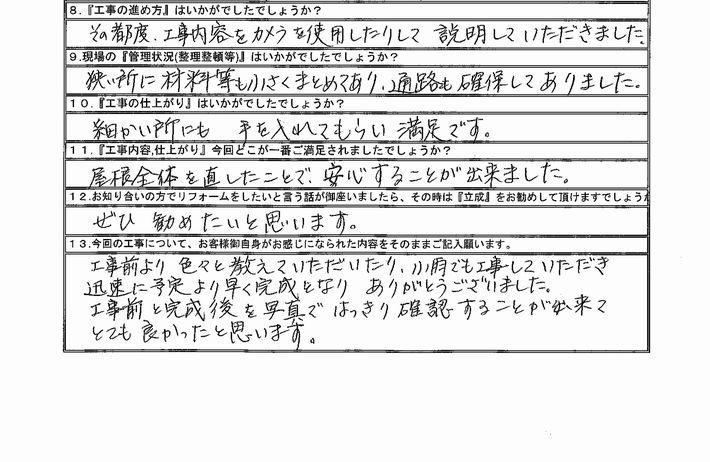 8.『工事の進め方』はいかがでしたでしょうか？
その都度、工事内容をカメラを使用したりして説明していただきました。
9.現場の『管理状況(整理整頓等)』はいかがでしたでしょうか？
狭い所に材料等も小さくまとめてあり、通路も確保してありました。
10.『工事の仕上がり』はいかがでしたでしょうか？
細かい所にも手を入れてもらい満足です。
11.『工事内容,仕上がり』今回どこが一番ご満足されましたでしょうか？
屋根全体を直したことで、安心することが出来ました。
12.お知り合いの方でリフォームをしたいと言う話が御座いましたら、その時は『立成』をお勧めして頂けますでしょうか
ぜひ勧めたいと思います。
13.今回の工事について、お客様御自身がお感じになられた内容をそのままご記入願います。
工事前より色々と教えていただいたり、小雨でも工事していただき
迅速に予定より早く完成となりありがとうございました。
工事前と完成後を写真ではっきり確認することが出来て
とても良かったと思います。